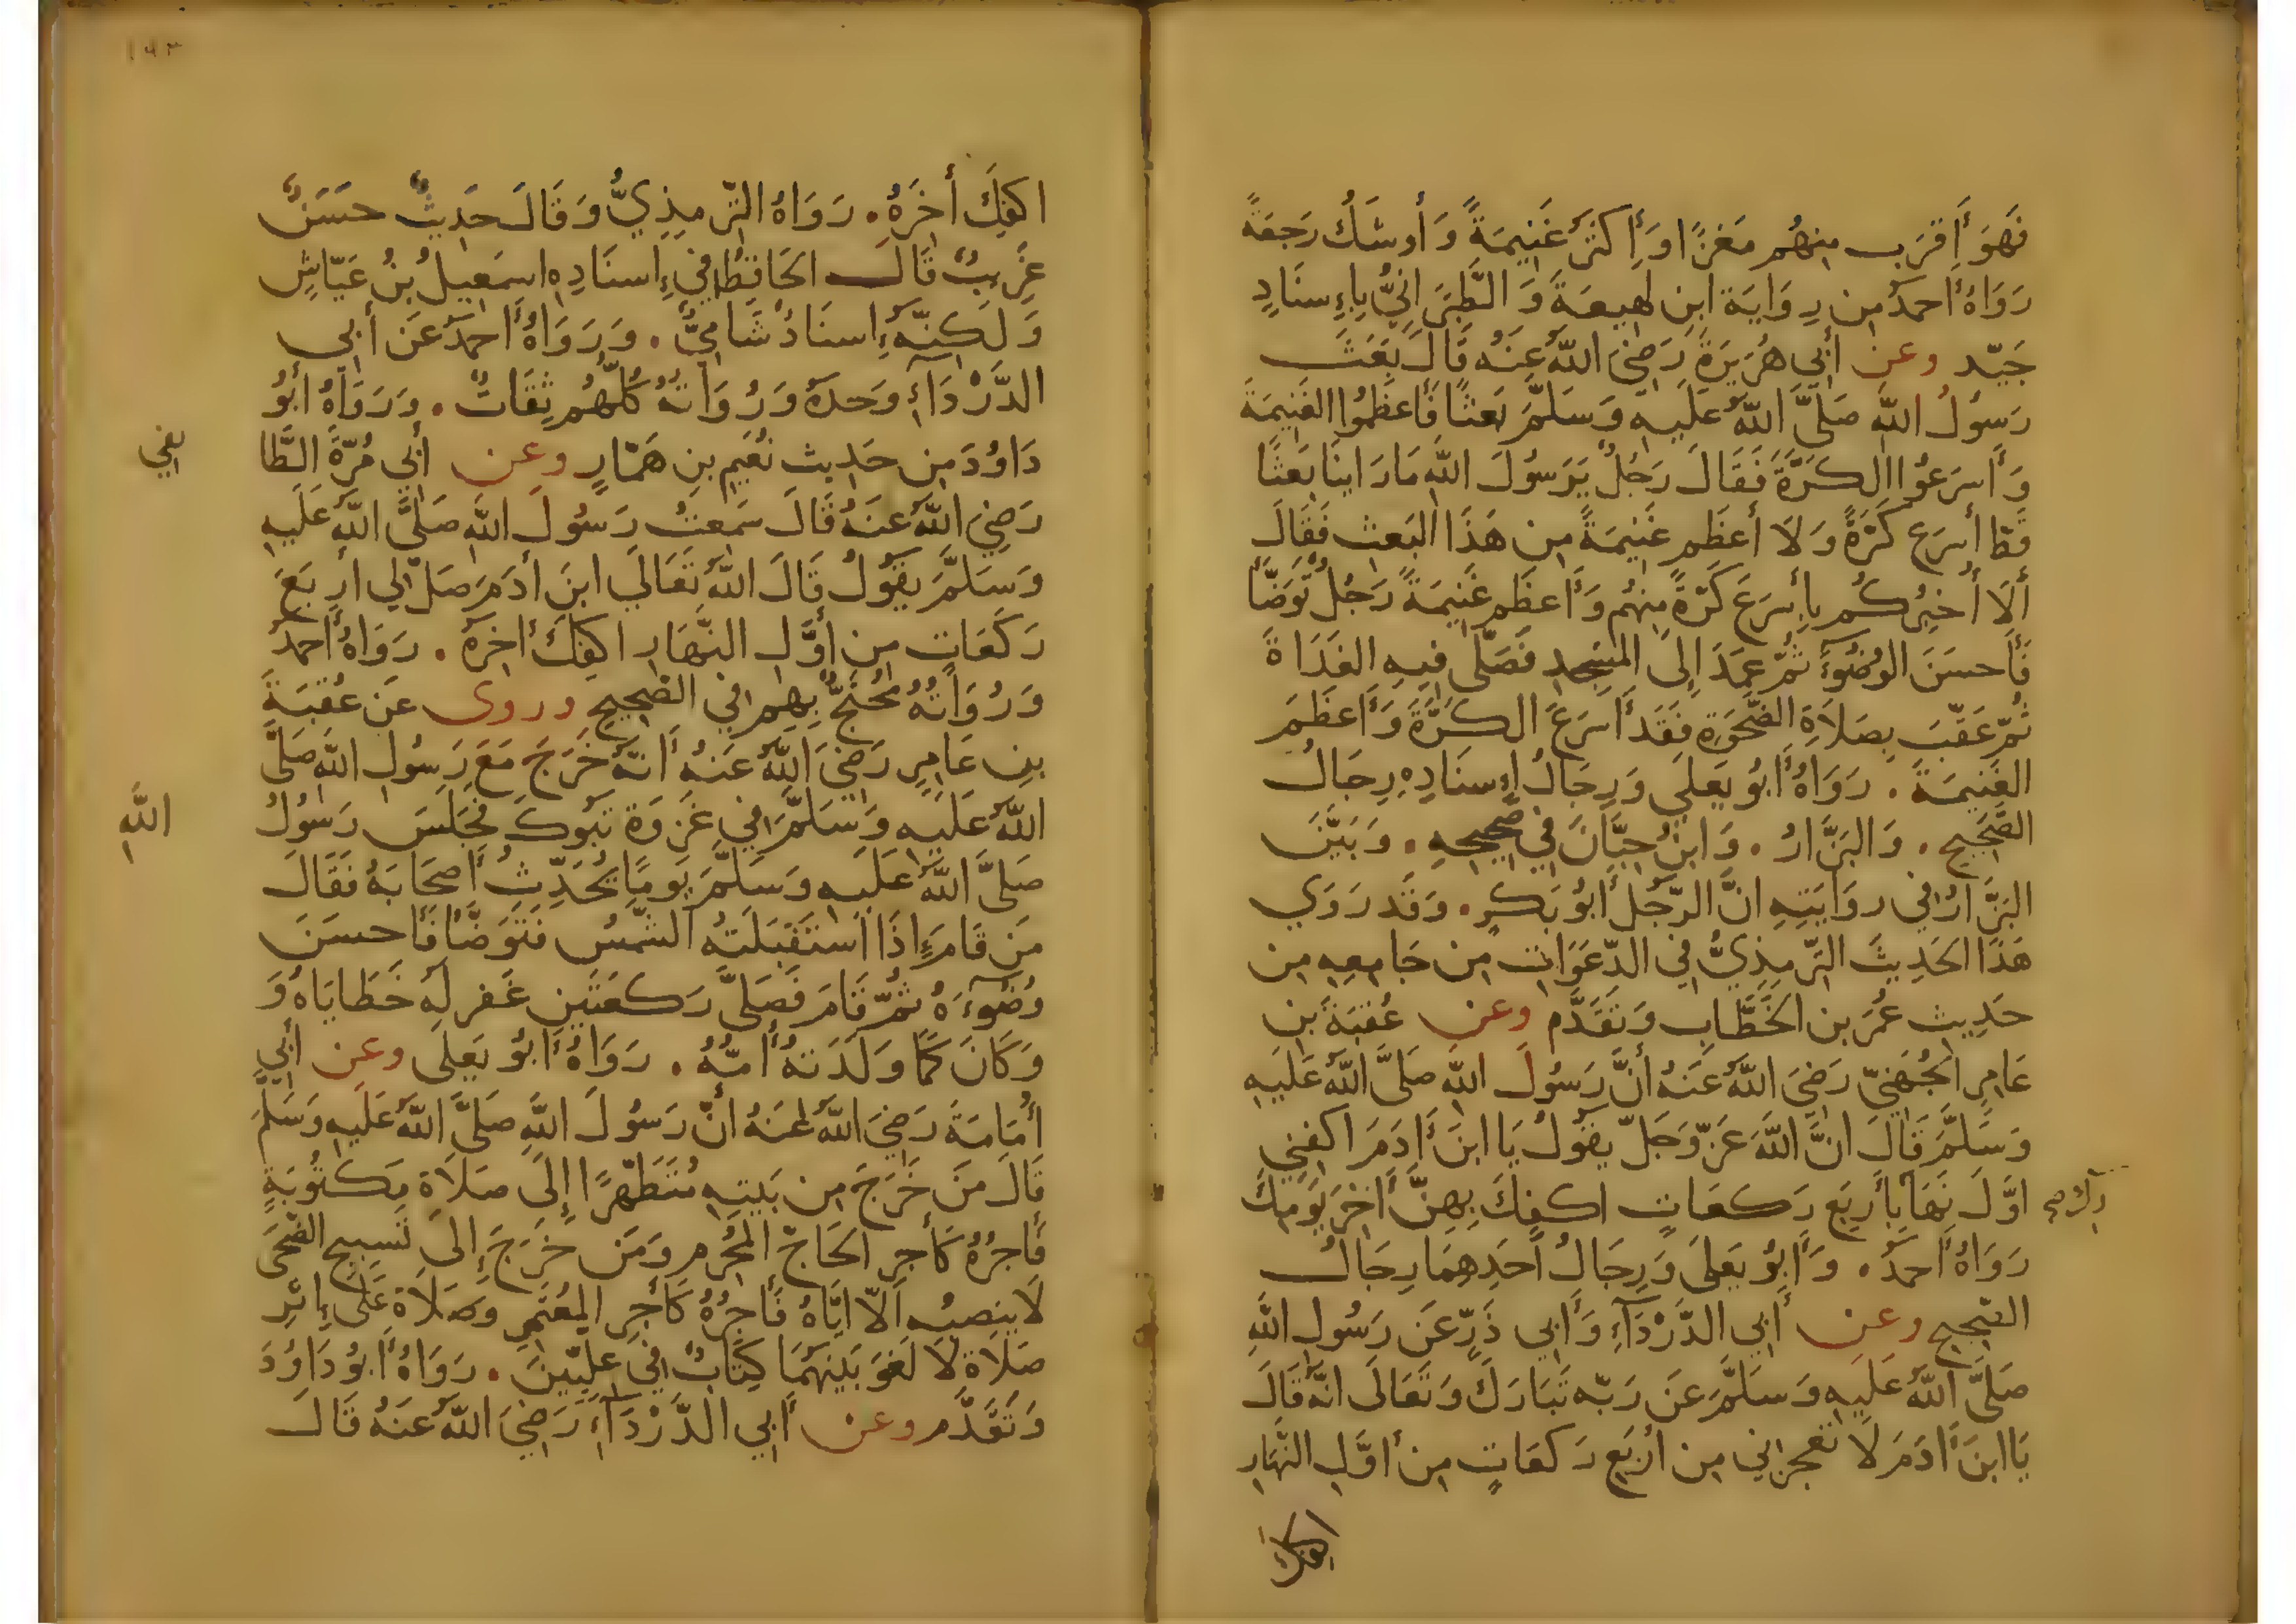 فَهُوَ أَقرَب مِنهُم مَغزًا وَأَكثَرَ غَنِيمَةً وَأوشَكُ رَجعَةً
رَوَاهُ أَحمَدُ مِن رِوَايَة ابنِ لهِيعَةَ وَالطَّبَرَانِيُّ بِإِسنَادٍ
جَيّد وعن أَبِي هُرَيرَةَ رَضِيَ اللَّهُ عَنهُ قَالَ بَعَثَ
رَسُولُ اللَّهِ صَلَّى اللَّهُ عَلَيهِ وَسَلَّمَ بَعثًا فَأَعظَمُوا الغَنِيمَةَ
وَأَسرَعُوا الكَرَّةَ فَقَالَ رَجُلٌ يَرَسُولَ اللَّهِ مَا رَاينَا بَعثًا
قَطّ أَسرَع كَرَّةً وَلَا أَعظَم غَنِيمَةً مِن هَذَا البَعث فَقَالَ
أَلَا أُخبِرُكُم بِأَسرَعَ كَرَّةً مِنهُم وَأَعظَم غَنِيمَةً رَجُلٌ تَوَضَّأَ
فَأَحسَنَ الوُضُوءَ ثُمّ عَمَدَ إِلَى المَسجِد فَصَلَّى فِيهِ الغَدَاةَ
ثُمّ عَقّبَ بِصَلَاةِ الضَّحوَةِ فَقَد أَسرَعَ الكَرَّةَ وَأَعظَمَ
الغَنِيمَةَ . رَوَاهُ أَبُو يَعلَى وَرِجَالُ إِسنَادِهِ رِجَالُ
الصَّحِيحِ . وَالبَزَّارُ . وَابنُ حِبَّانَ فِي صَحِيحِهِ . وَبَيَّنَ
البَزَّارُ فِي رِوَايَتِهِ انَّ الرّجُلَ أَبُو بَكرٍ . وَقَد رَوَي
هَذَا الحَدِيثَ التّرمِذِيُّ فِي الدّعَوَاتِ مِن جَامِعِهِ مِن
حَدِيثِ عُمَرَ بن الخَطَّابِ وَتَقَدَّم وعن عُقبَةَ بنِ
عَامِرٍ الجُهَنِيّ رَضِيَ اللَّهُ عَنهُ أَنَّ رَسُولَ اللَّهِ صَلَّى اللَّهُ عَلَيهِ
وَسَلَّمَ قَالَ انَّ اللَّهَ عَزّ وَجَلّ يقُولُ يَا ابنَ أَدَمَ اكفِنِي
اوَّلَ نَهَا بِأَربَعِ رَكعَاتٍ اكفِكَ بِهِنَّ أَخِرَ يَومِكَ
رَوَاهُ أَحمَدُ . وَأَبُو يَعلَى وَرِجَالُ أَحَدِهِمَا رِجَالُ
الصَّحِيحِ وعن أَبِي الدَّردَآءِ وَأَبِي ذَرٍّ عَن رَسُولِ اللَّهِ
صَلَّى اللَّهُ عَلَيهِ وَسَلَّمَ عَن رَبّهِ تَبَارَكَ وَتَعَالَى انَّهُ قَالَ
يَا ابنَ أَدَمَ لَا تَعجِزنِي مِن أَربَعِ رَكعَاتٍ مِن أَوَّلِ النّهَارِ
اكفك
اكفِكَ أَخِرَهُ . رَوَاهُ التّرمِذِيُّ وَقَالَ حَدِيثٌ حَسَنٌ
غَرِيبٌ قَالَ الحَافِظُ فِي إِسنَادِهِ اسمَعِيلُ بنُ عَيّاشٍ
وَلَكِنَّهُ إِسنَادٌ شَامِيٌّ . وَرَوَاهُ أَحمَدُ عَن أَبِي
الدَّردَآءِ وَحدَهُ وَرُوَاتُهُ كُلُّهُم ثِقَاتٌ . وَرَوَاهُ أَبُو
دَاوُدَ مِن حَدِيثِ نُعَيمِ بنِ هَمّارٍ وعن أَبِي مُرّةَ الطَّا
يفي
رَضِيَ اللَّهُ عَنهُ قَالَ سَمِعتُ رَسُولَ اللَّهِ صَلَّى اللَّهُ عَلَيهِ
وَسَلَّمَ يقُولُ قَالَ اللَّهُ تَعَالَي ابنَ أَدَمَ صَلّ لِي أَربَعَ
رَكَعَاتٍ مِن أَوَّلِ النّهَارِ اكفِكَ أَخِرَهُ . رَوَاهُ أَحمَدُ
وَرُوَاتُهُ مُحتَجٌّ بِهِم فِي الصَّحِيحِ وروى عَن عُقبَةَ
بنِ عَامِرٍ رَضِيَ اللَّهُ عَنهُ أَنّهُ خَرَجَ مَعَ رَسُولِ اللَّهِ صَلَّى
اللَّهُ عَلَيهِ وَسَلَّمَ فِي غَزوَة تَبُوكَ فَجَلَسَ رَسُولُ
اللَّهِ
صَلَّى اللَّهُ عَلَيهِ وَسَلَّمَ يَومًا يُحَدِّثُ أَصحَابَهُ فَقَالَ
مَن قَامَ إِذَا استَقبَلَتهُ الشَّمسُ فَتَوَضَّأَ فَأَحسَنَ
وُضُوءَهُ ثُمّ قَامَ فَصَلَّى رَكعَتَينِ غُفِر لَهُ خَطَايَاهُ وَ
وَكَانَ كَمَا وَلَدَتهُ أُمّهُ . رَوَاهُ أَبُو يَعلَى وعن أَبِي
أُمَامَةَ رَضِيَ اللَّهُ عَنهُ أَنَّ رَسُولَ اللَّهِ صَلَّى اللَّهُ عَلَيهِ وَسَلَّمَ
قَالَ مَن خَرَجَ مِن بَيتِهِ مُتَطَهّرًا إِلَى صَلَاةٍ مَكتُوبَةٍ
فَأَجرُهُ كَأَجرِ الحَاجّ المُحرِمِ وَمَن خَرَجَ إِلَى تَسبِيحِ الضُّحَى
لَا ينصِبُه اَلّا ايَّاهُ فَأَجرُهُ كَأَجرِ المُعتَمِرِ وَصَلَاة عَلَى إِثرِ
صَلَاة لَا لَغوَ بَينَهُمَا كِتَابٌ فِي عِلّيِّينَ . رَوَاهُ أَبُو دَاوُدَ
وَتَقَدَّم وعن أَبِي الدَّردَآءِ رَضِيَ اللَّهُ عَنهُ قَالَ